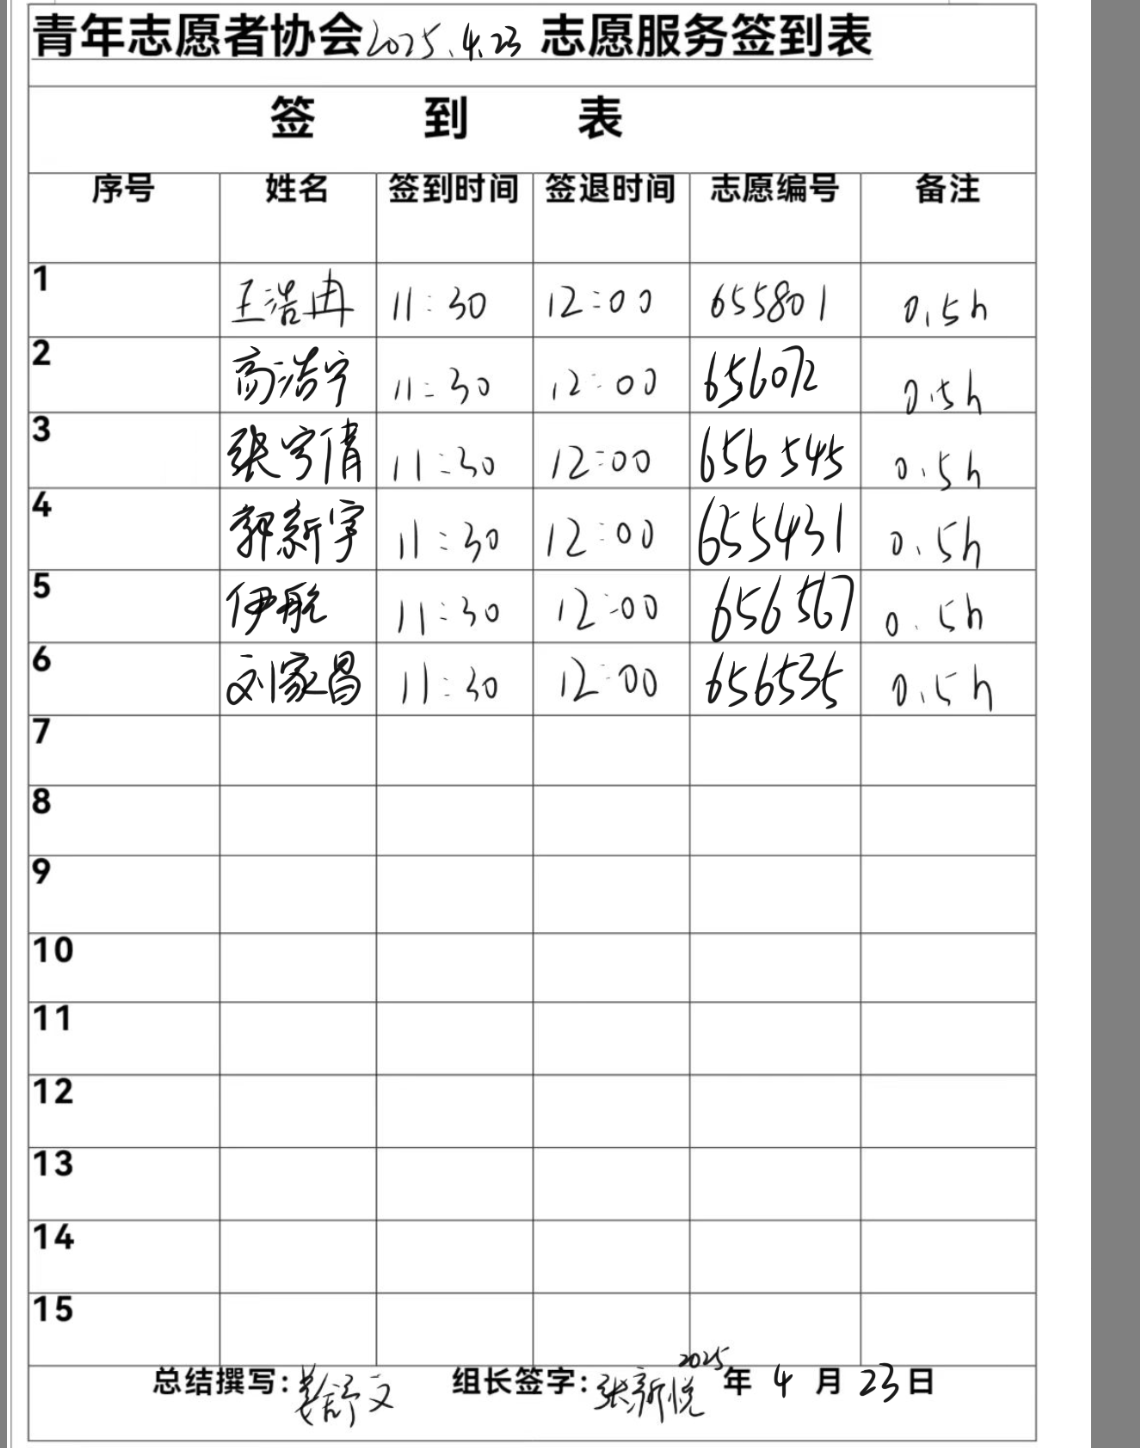 青年志愿者协会2025.4.23 志愿服务签到表
签 到 表
序号 姓名 签到时间 签退时间 志愿编号 备注
1 王浩冉 11:30 12:00 655801 0.5h
2 高浩宁 11:30 12:00 656072 0.5h
3 张宇倩 11:30 12:00 656545 0.5h
4 郭新宇 11:30 12:00 655431 0.5h
5 伊航 11:30 12:00 656567 0.5h
6 刘家昌 11:30 12:00 656535 0.5h
7
8
9
10
11
12
13
14
15
总结撰写:姜舒文 组长签字:张新悦 2025年 4 月 23日